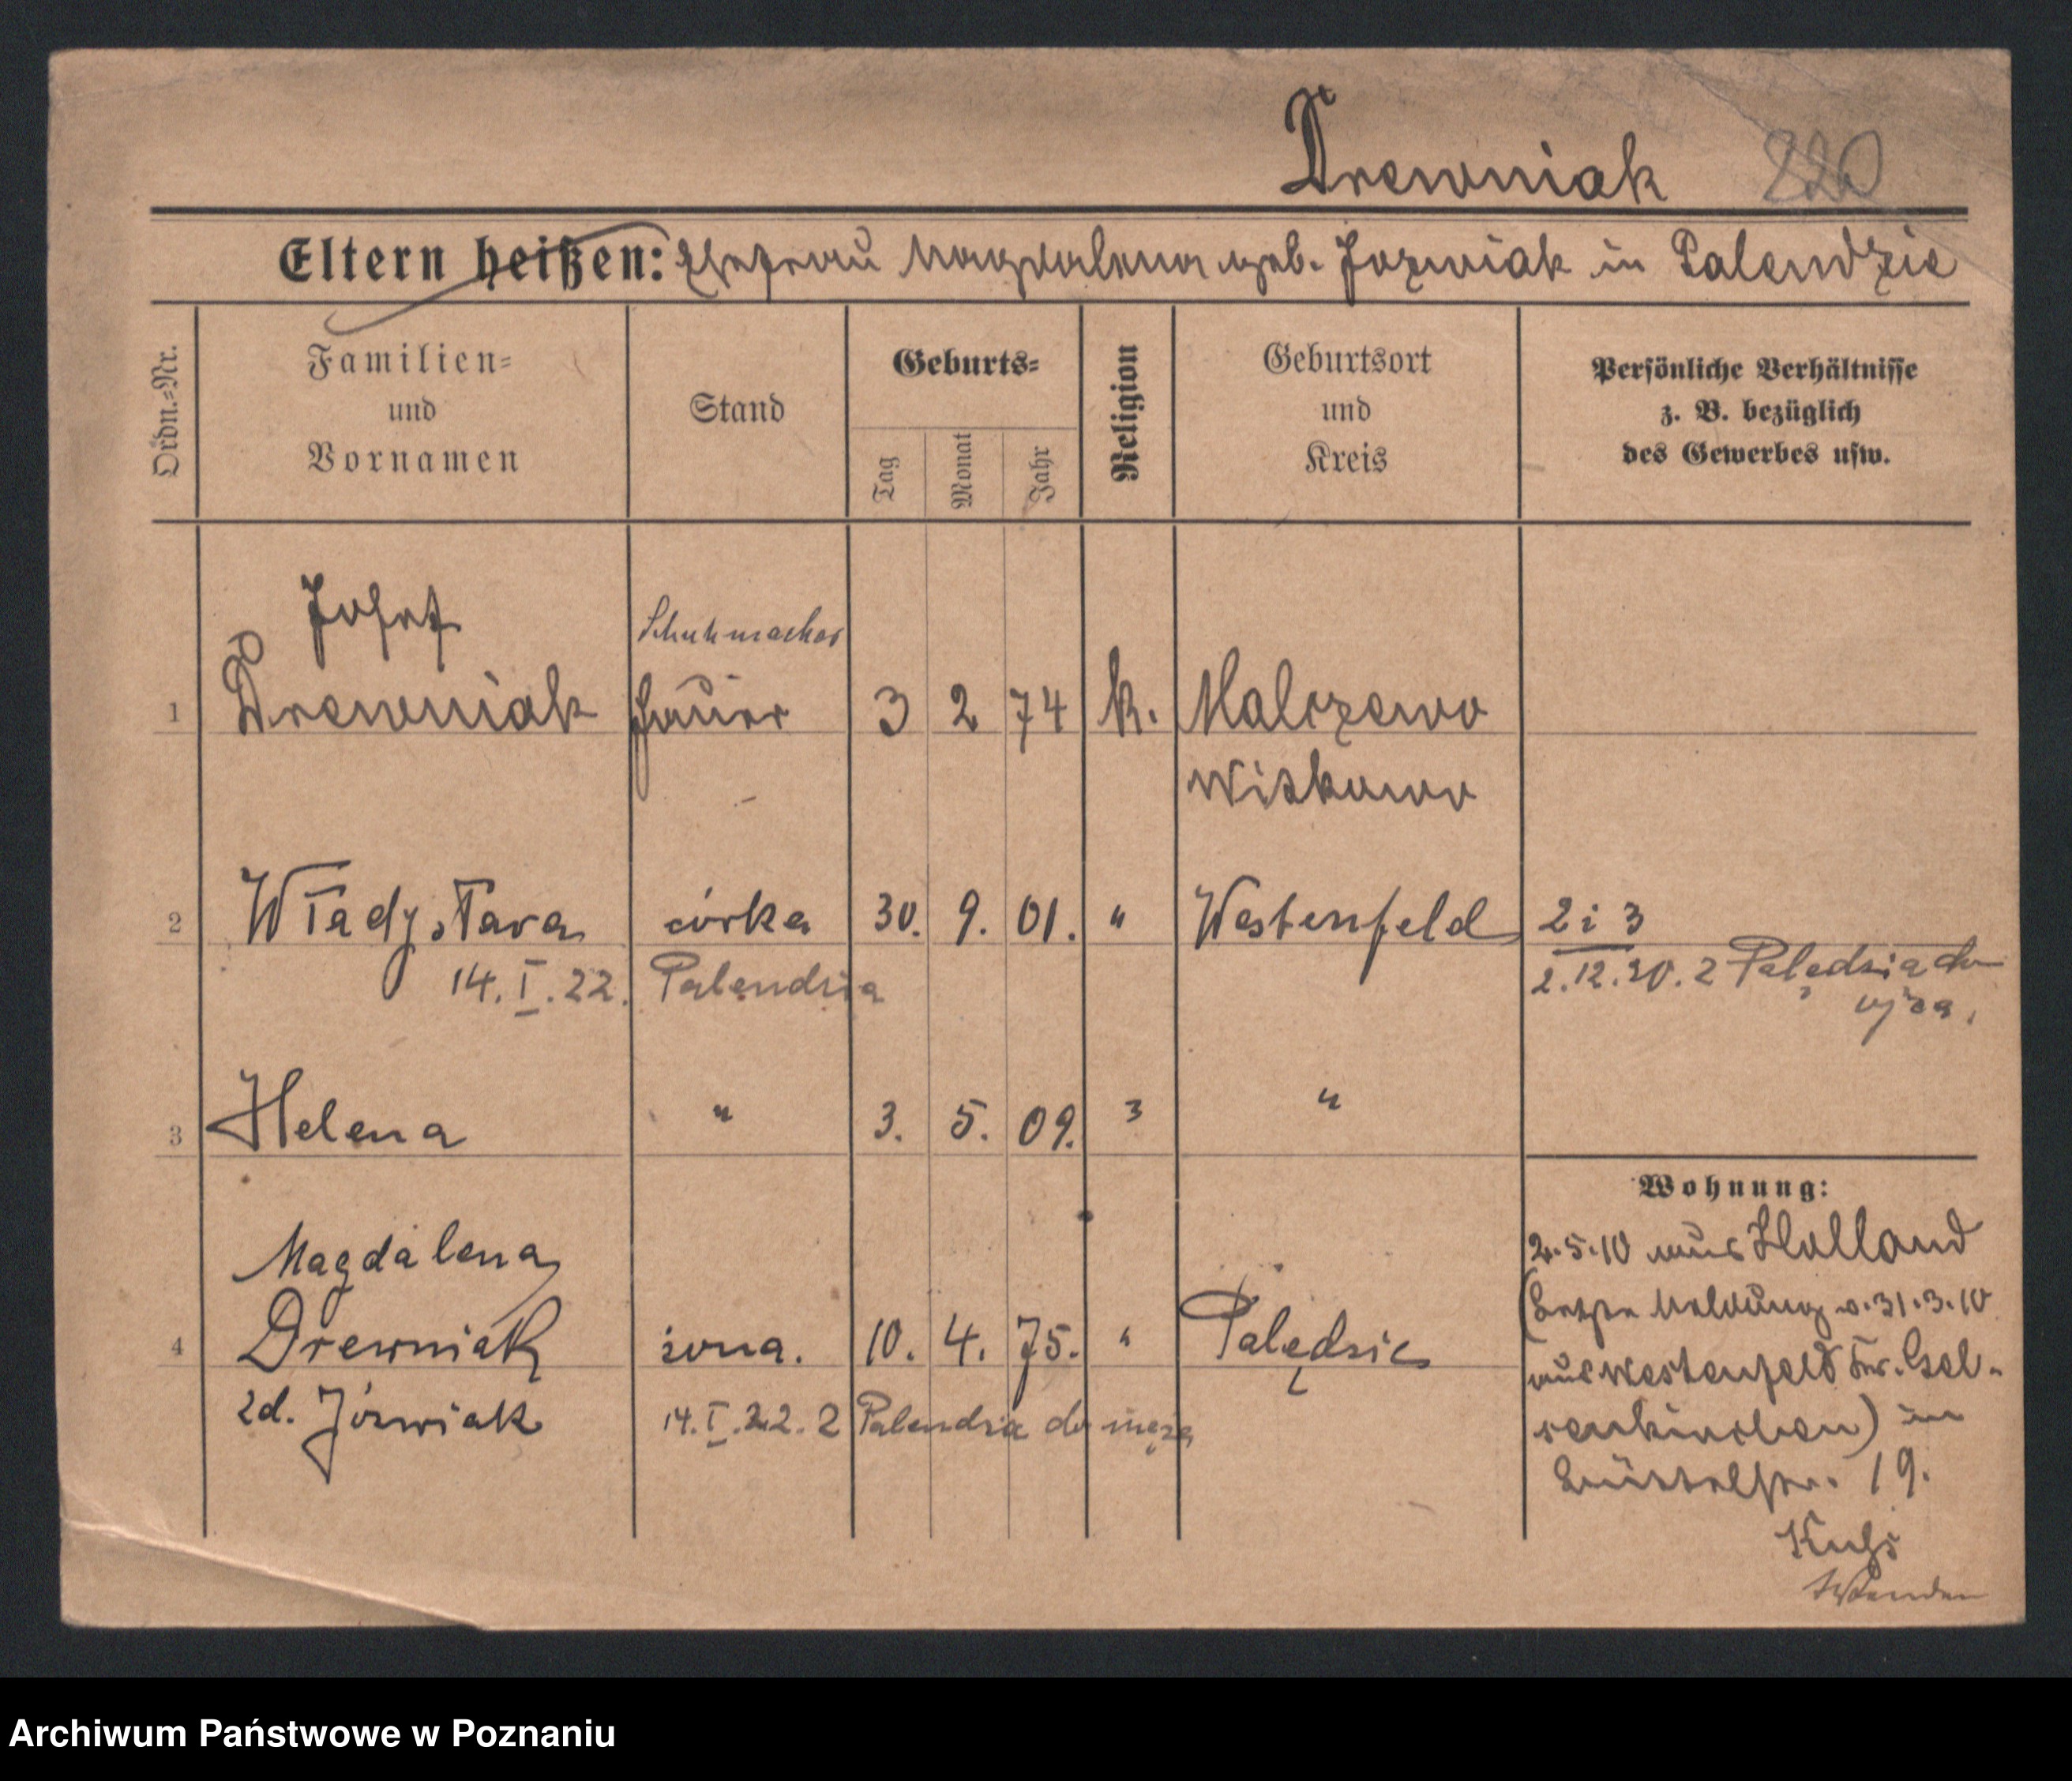 Drewniak 220
Eltern heißen: Ehefrau Magdalena geb. Jozwiak in Palendzie
Ordn.=Nr.
Familien=
und
Vornamen
Stand
Geburts=
Tag
Monat
Jahr
Religion
Geburtsort
und
Kreis
Persönliche Verhältnisse
z. B. bezüglich
des Gewerbes usw.
Josef
Schuhmacher
1 Drewniak Häuer 3 2 74 k. Malczewo
Witkowo
2 Władysława córka 30. 9. 01. " Westenfeld 2 i 3
14.I.22. Palendzia 2.12.20. z Palędzia do
ojca.
3 Helena " 3. 5. 09. " "
Wohnung:
Magdalena
4 Drewniak żona. 10. 4. 75. " Palędzie
zd. Józwiak 14.I.22. z Palendzia do męża
2.5.10 aus Holland
(Letzte Meldung v. 31.3.10
aus Westenfeld Kr. Gel-
senkirchen) in
19.
Wenden
Archiwum Państwowe w Poznaniu